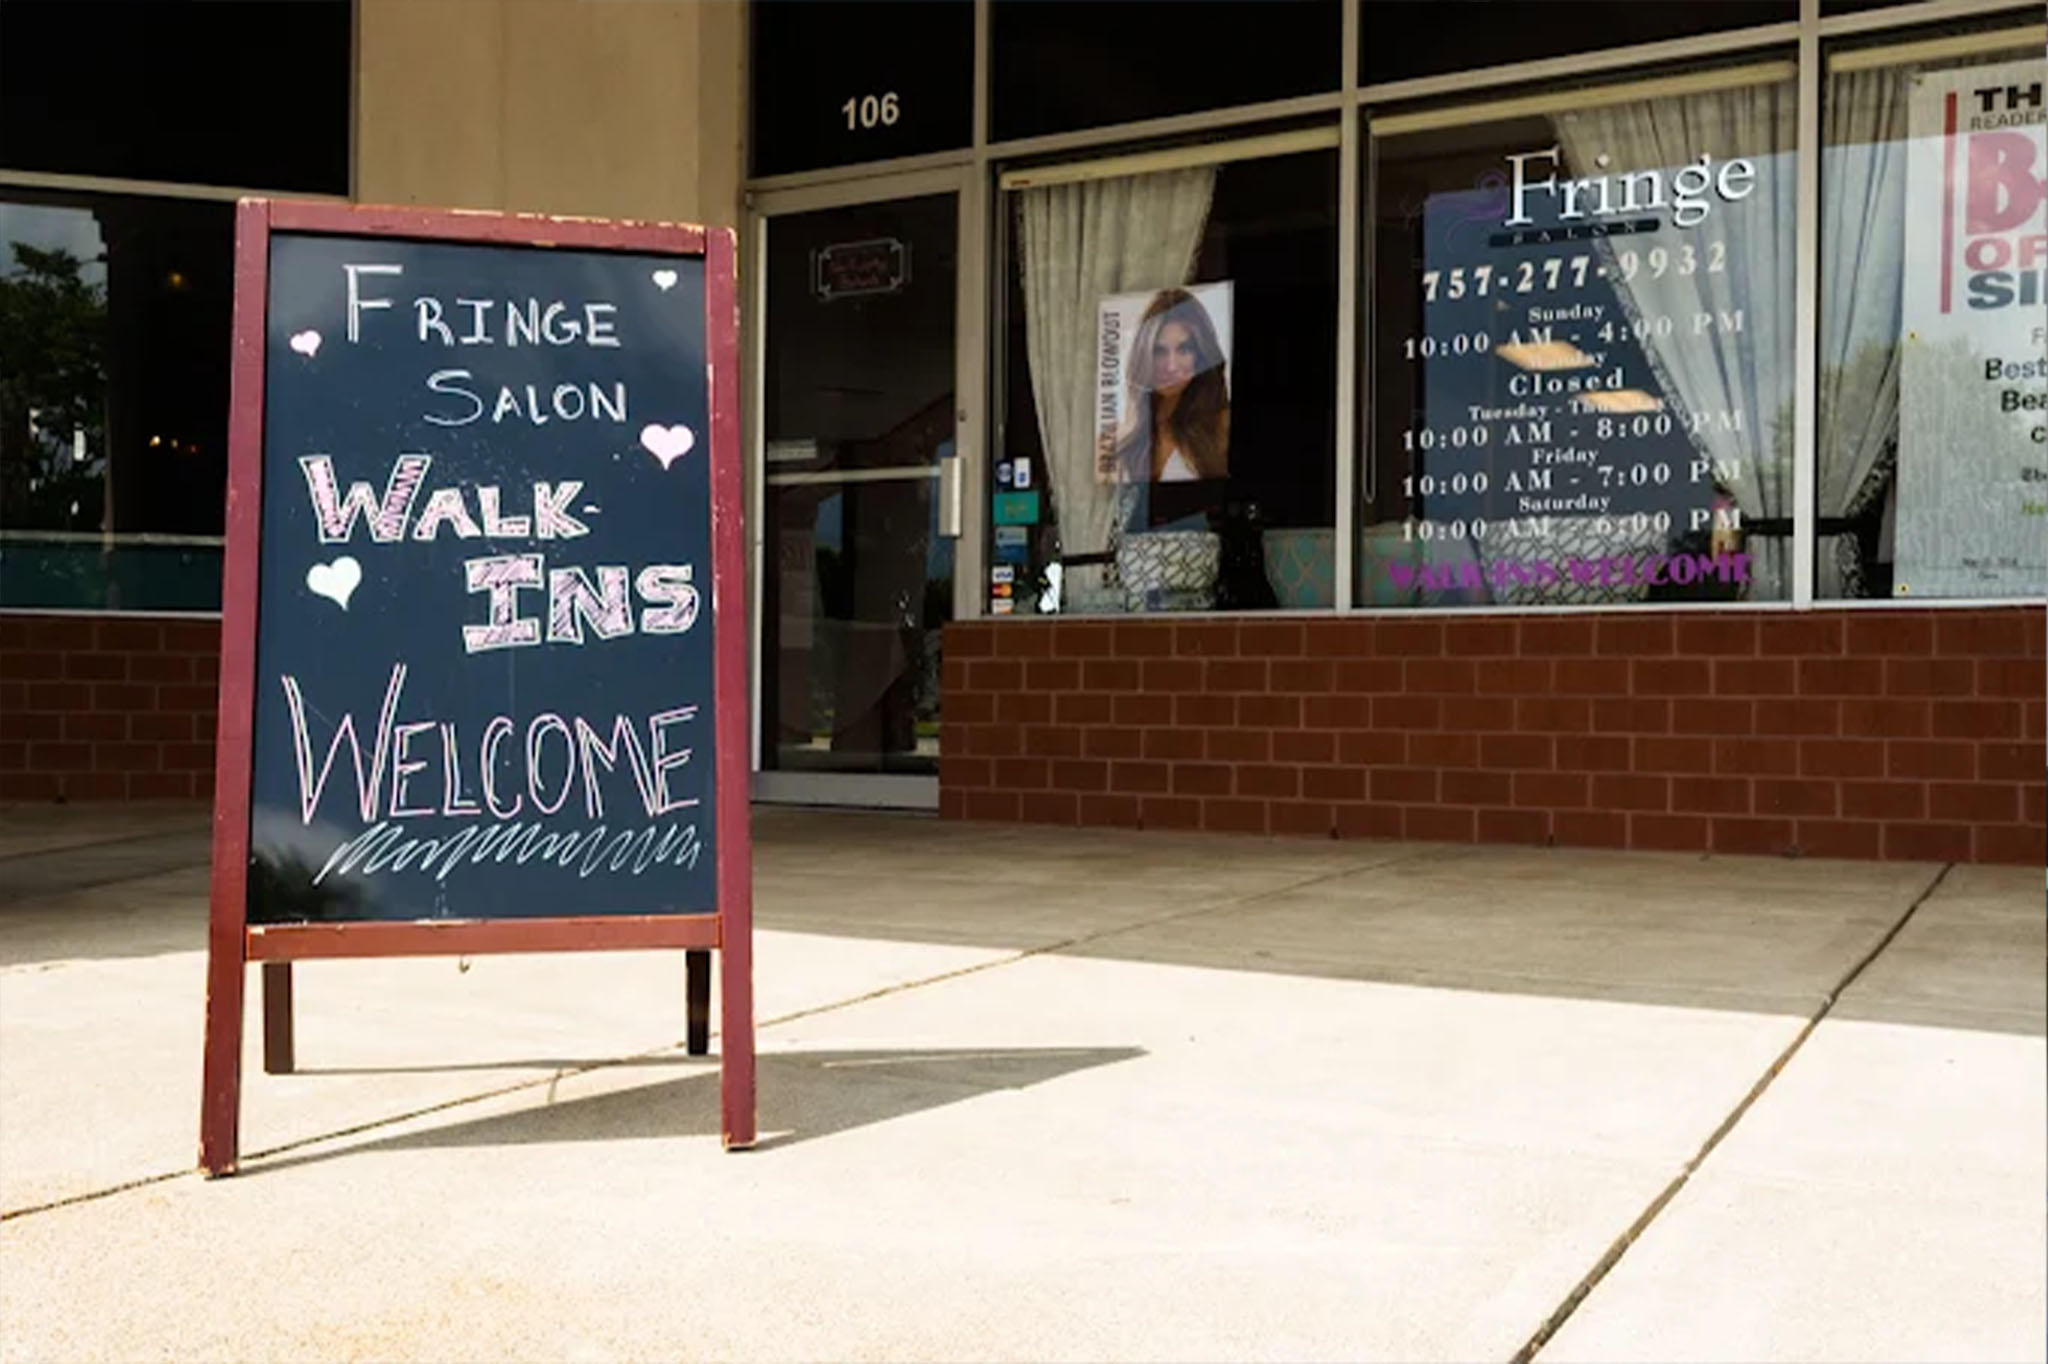 FRINGE
SALON
WALK-
INS
WELCOME
106
BRAZILIAN BLOWOUT
Fringe
SALON
757-277-9932
Sunday
10:00 AM - 4:00 PM
Closed
Tuesday -
10:00 AM - 8:00 PM
Friday
10:00 AM - 7:00 PM
Saturday
10:00 AM - 6:00 PM
WALK-INS WELCOME
VISA
TH
READER
B
OF
SI
F
Best
Bea
C